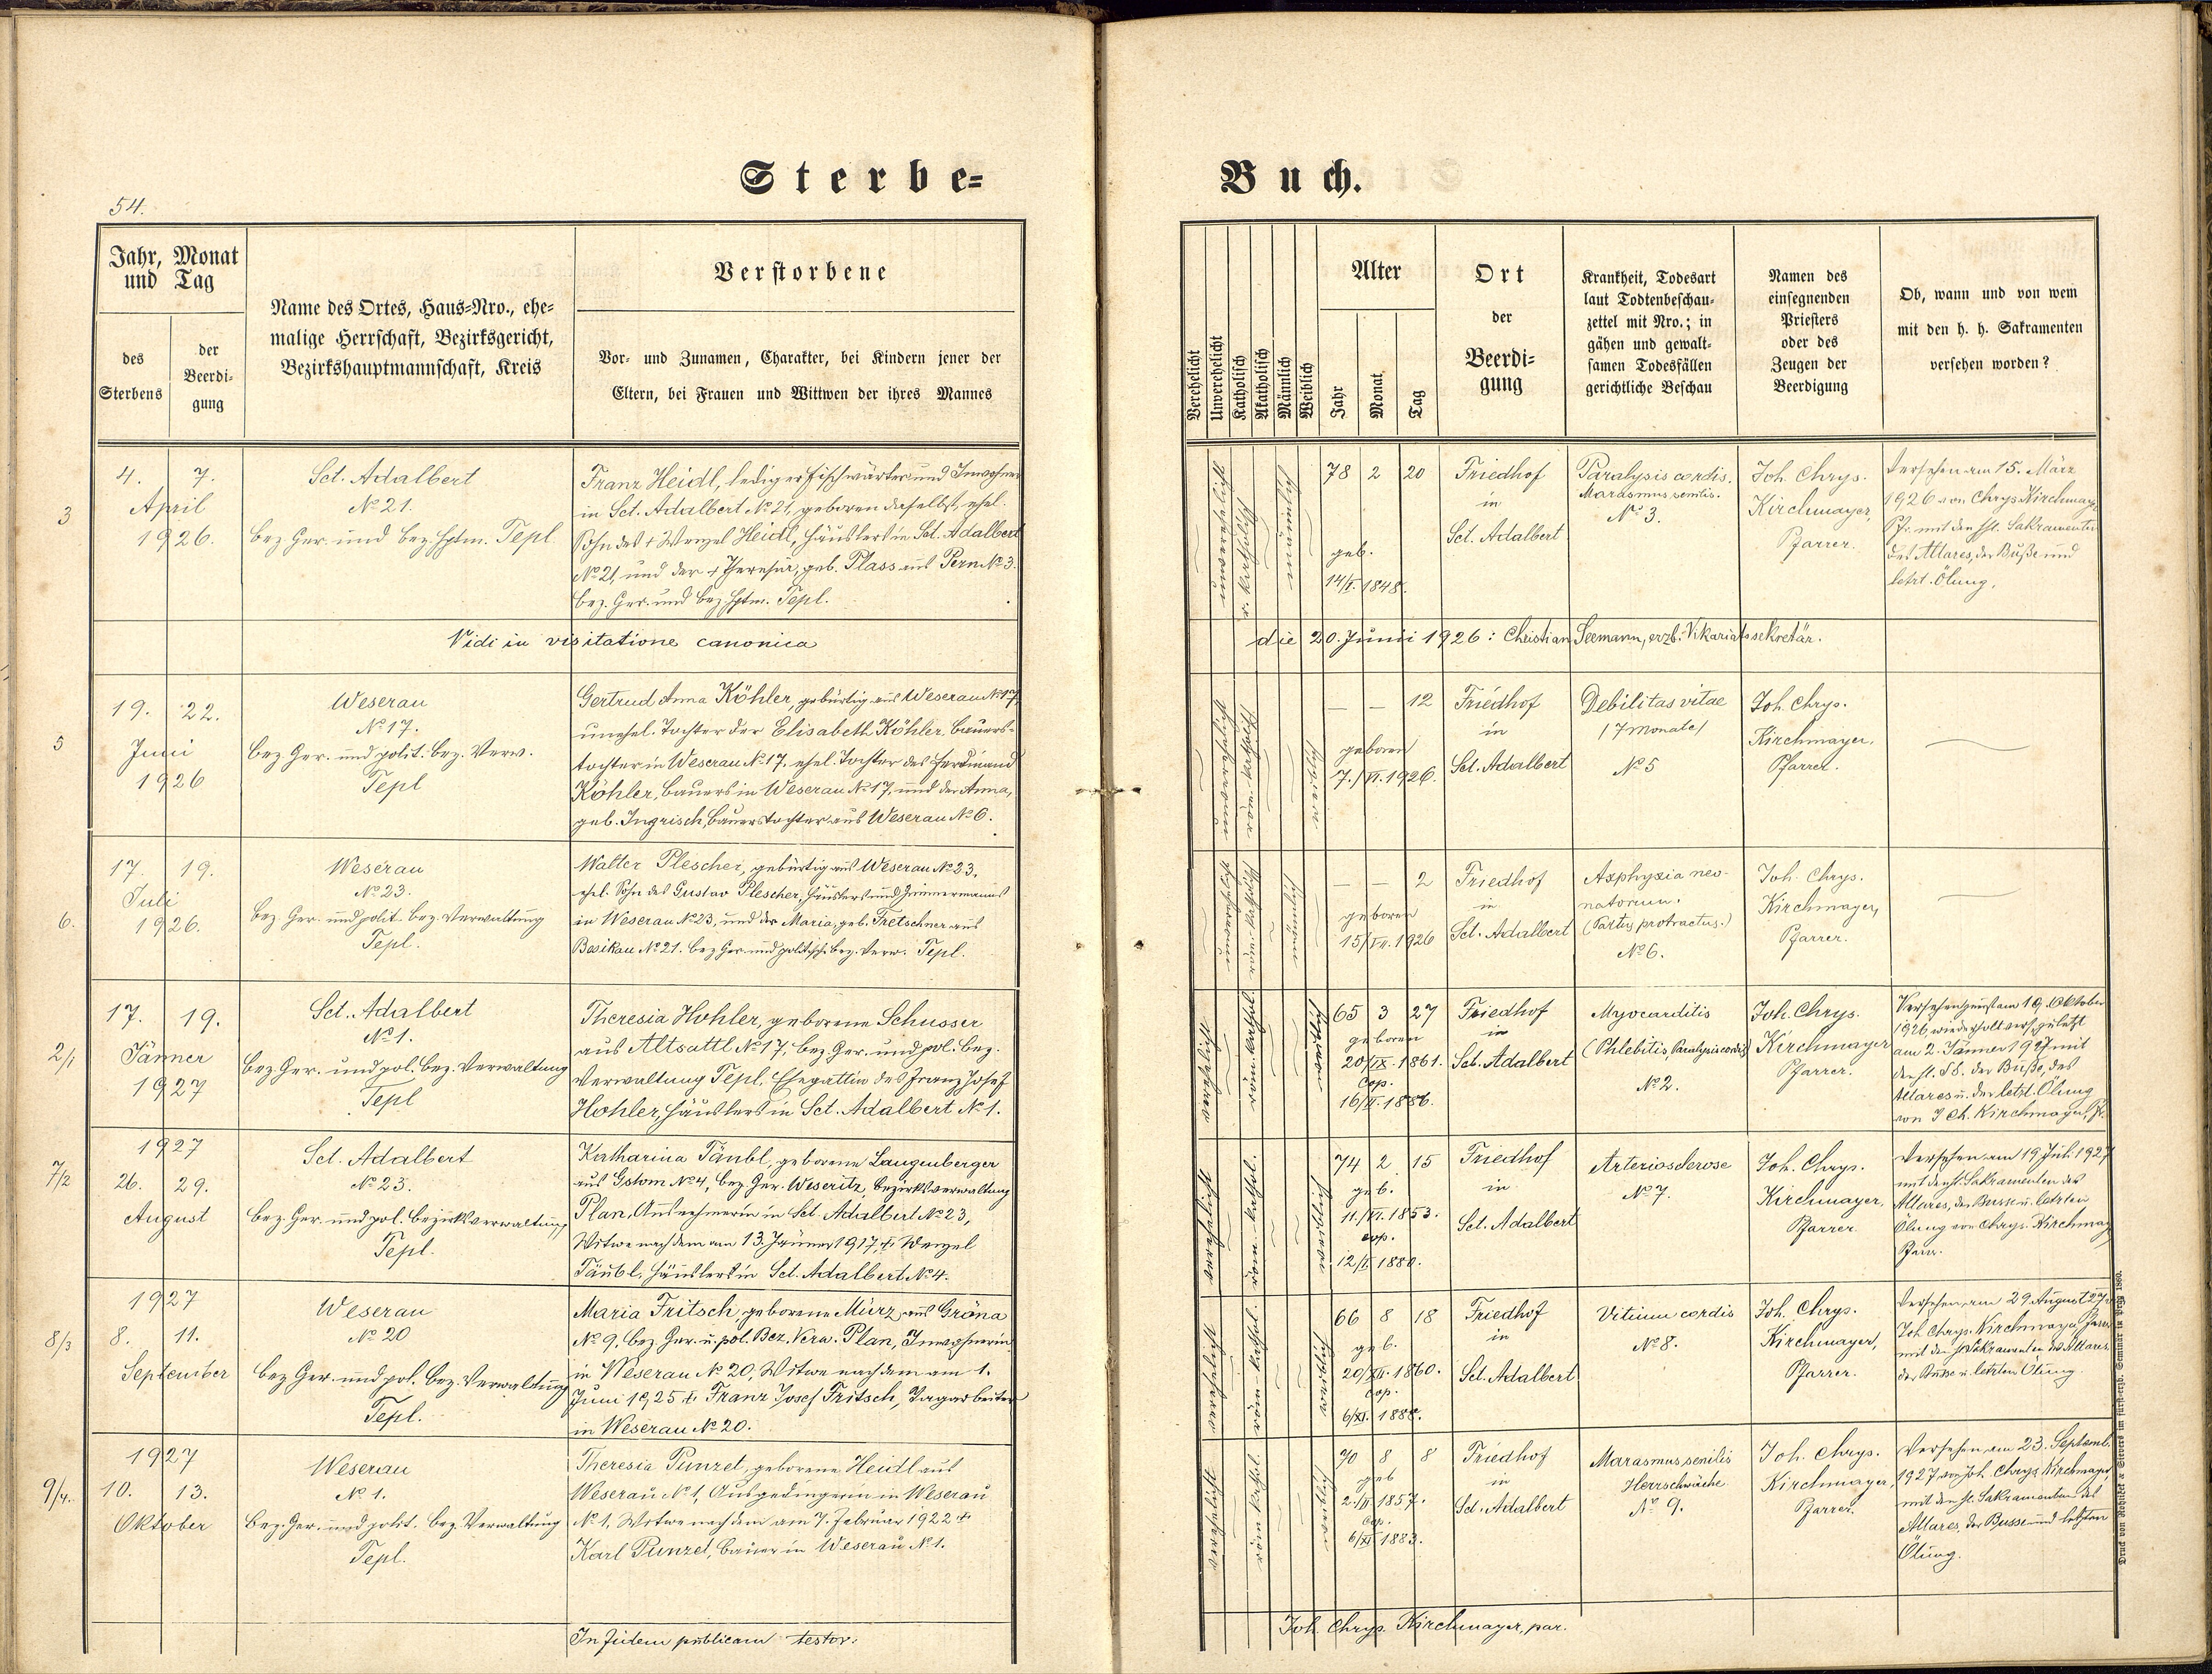 Sterbe=
Buch.
54.
Jahr, Monat
und Tag
des
Sterbens
der
Beerdi=
gung
Name des Ortes, Haus=Nro., ehe=
malige Herrschaft, Bezirksgericht,
Bezirkshauptmannschaft, Kreis
Verstorbene
Vor= und Zunamen, Charakter, bei Kindern jener der
Eltern, bei Frauen und Wittwen der ihres Mannes
Verehelicht
Unverehelicht
Katholisch
Akatholisch
Männlich
Weiblich
Alter
Jahr
Monat
Tag
Ort
der
Beerdi=
gung
Krankheit, Todesart
laut Todtenbeschau=
zettel mit Nro.; in
gähen und gewalt=
samen Todesfällen
gerichtliche Beschau
Namen des
einsegnenden
Priesters
oder des
Zeugen der
Beerdigung
Ob, wann und von wem
mit den h. h. Sakramenten
versehen worden?
3
4. 7.
April
1926.
Sct. Adalbert
№ 21.
bez. Ger. und bez. Hptm. Tepl
Franz Heidl, lediger Fischwärter und Inwohner
in Sct. Adalbert № 21, geboren daselbst, ehel.
Sohn des † Wenzel Heidl, Häuslers in Sct. Adalbert
№ 21, und der † Theresia, geb. Plass aus Pern № 3.
bez. Ger. und bez. Hptm. Tepl.
unverehelicht
r. katholisch
männlich
78 2 20
geb.
14/I. 1848.
Friedhof
in
Sct. Adalbert
Paralysis cordis.
Marasmus senilis.
№ 3.
Joh. Chrys.
Kirchmayer,
Pfarrer.
Versehen am 15. März
1926 von Chrys. Kirchmayer
Pfr. mit den hl. Sakramenten
des Altares, der Buße und
letzt. Ölung.
Vidi in visitatione canonica die 20. Junii 1926: Christian Seemann, erzb. Vikariatssekretär.
5
19. 22.
Juni
1926
Weserau
№ 17.
bez. Ger. und polit. bez. Verw.
Tepl
Gertrud Anna Köhler, gebürtig aus Weserau № 17,
unehel. Tochter der Elisabeth Köhler, Bauers-
tochter in Weserau № 17, ehel. Tochter des Ferdinand
Köhler, Bauers in Weserau № 17, und der Anna,
geb. Ingrisch, Bauerstochter aus Weserau № 6.
unverehelicht
röm-kathol.
weiblich
— — 12
geboren
7./VI. 1926.
Friedhof
in
Sct. Adalbert
Debilitas vitae
/7 Monate/
№ 5
Joh. Chrys.
Kirchmayer,
Pfarrer.
6.
17. 19.
Juli
1926.
Weserau
№ 23.
bez. Ger. und polit. bez. Verwaltung
Tepl.
Walter Plescher, gebürtig aus Weserau № 23,
ehel. Sohn des Gustav Plescher, Häuslers und Zimmermanns
in Weserau № 23, und der Maria, geb. Tretschner aus
Besikau № 21. bez. Ger. und politisch. bez. Verw. Tepl.
männlich
— — 2
geboren
15/VII. 1926
Friedhof
in
Sct. Adalbert
Asphyxia neo-
natorum.
(Partus protractus.)
№ 6.
Joh. Chrys.
Kirchmayer,
Pfarrer.
2/1
17. 19.
Jänner
1927
Sct. Adalbert
№ 1.
bez. Ger. und pol. bez. Verwaltung
Tepl
Theresia Hohler, geborene Schusser
aus Altsattl № 17, bez. Ger. und pol. bez.
Verwaltung Tepl, Ehegattin des Franz Josef
Hohler, Häuslers in Sct. Adalbert № 1.
verehelicht
röm. kathol.
weiblich
65 3 27
geboren
20/IX. 1861.
cop.
16/II. 1886.
Friedhof
in
Sct. Adalbert
Myocarditis
(Phlebitis, Paralysis cordis)
№ 2.
Joh. Chrys.
Kirchmayer
Pfarrer.
am 2. Jänner 1927 mit
den hl. SS. der Buße, des
Altares u. der letzt. Ölung
von J. Ch. Kirchmayer, Pf.
7/2
1927
26. 29.
August
Sct. Adalbert
№ 23.
bez. Ger. und pol. bezirksverwaltung
Tepl.
Katharina Täubl, geborene Langenberger
aus Gstom № 4, bez. Ger. Weseritz, bezirksverwaltung
Plan, Ausnehmerin in Sct. Adalbert № 23,
Witwe nach dem am 13. Jänner 1917 † Wenzel
Täubl, Häuslers in Sct. Adalbert № 4.
verehelicht
röm-kathol.
weiblich
74 2 15
geb.
11./VI. 1853.
cop.
12/I. 1880.
Friedhof
in
Sct. Adalbert
Arteriosclerose
№ 7.
Joh. Chrys.
Kirchmayer,
Pfarrer
Versehen am 19. Juli 1927
mit den hl. Sakramenten des
Altares, der Busse u. letzten
Ölung von Chrys. Kirchmay
Pfarr.
8/3
1927
8. 11.
September
Weserau
№ 20
bez. Ger. und pol. bez. Verwaltung
Tepl.
Maria Fritsch, geborene Mürz aus Gröna
№ 9, bez. Ger. u. pol. Bez. Verw. Plan, Inwohnerin
in Weserau № 20, Witwe nach dem am 1.
Juni 1925 † Franz Josef Fritsch, Tagarbeiter
in Weserau № 20.
verehelicht
röm-kathol.
weiblich
66 8 18
geb.
20/XII. 1860.
cop.
6/XI. 1888.
Friedhof
in
Sct. Adalbert
Vitium cordis
№ 8.
Joh. Chrys.
Kirchmayer,
Pfarrer.
Versehen am 29. August 27
Joh. Chrys. Kirchmayer Pfarr
mit den hl. Sakramenten des Altares
der Busse u. letzten Ölung.
9/4.
1927
10. 13.
Oktober
Weserau
№ 1.
Bez. Ger. und polit. bez. Verwaltung
Tepl.
Theresia Punzet, geborene Heidl aus
Weserau № 1, Ausgedingerin in Weserau
№ 1, Witwe nach dem am 7. Februar 1922 †
Karl Punzet, Bauer in Weserau № 1.
verehelicht
röm kathol.
weiblich
70 8 8
geb
2./II 1857.
cop.
6/XI 1883.
Friedhof
in
Sct. Adalbert
Marasmus senilis
Herzschwäche
№ 9.
Joh. Chrys.
Kirchmayer,
Pfarrer.
Versehen am 23. Septemb.
1927 von Joh. Chrys. Kirchmayer,
mit den hl. Sakramenten des
Altares, der Busse und letzten
Ölung.
In fidem publicam testor: Joh. Chrys. Kirchmayer, par.
Druck von Rohliček & Sievers im fürst-erzb. Seminär in Prag 1860.